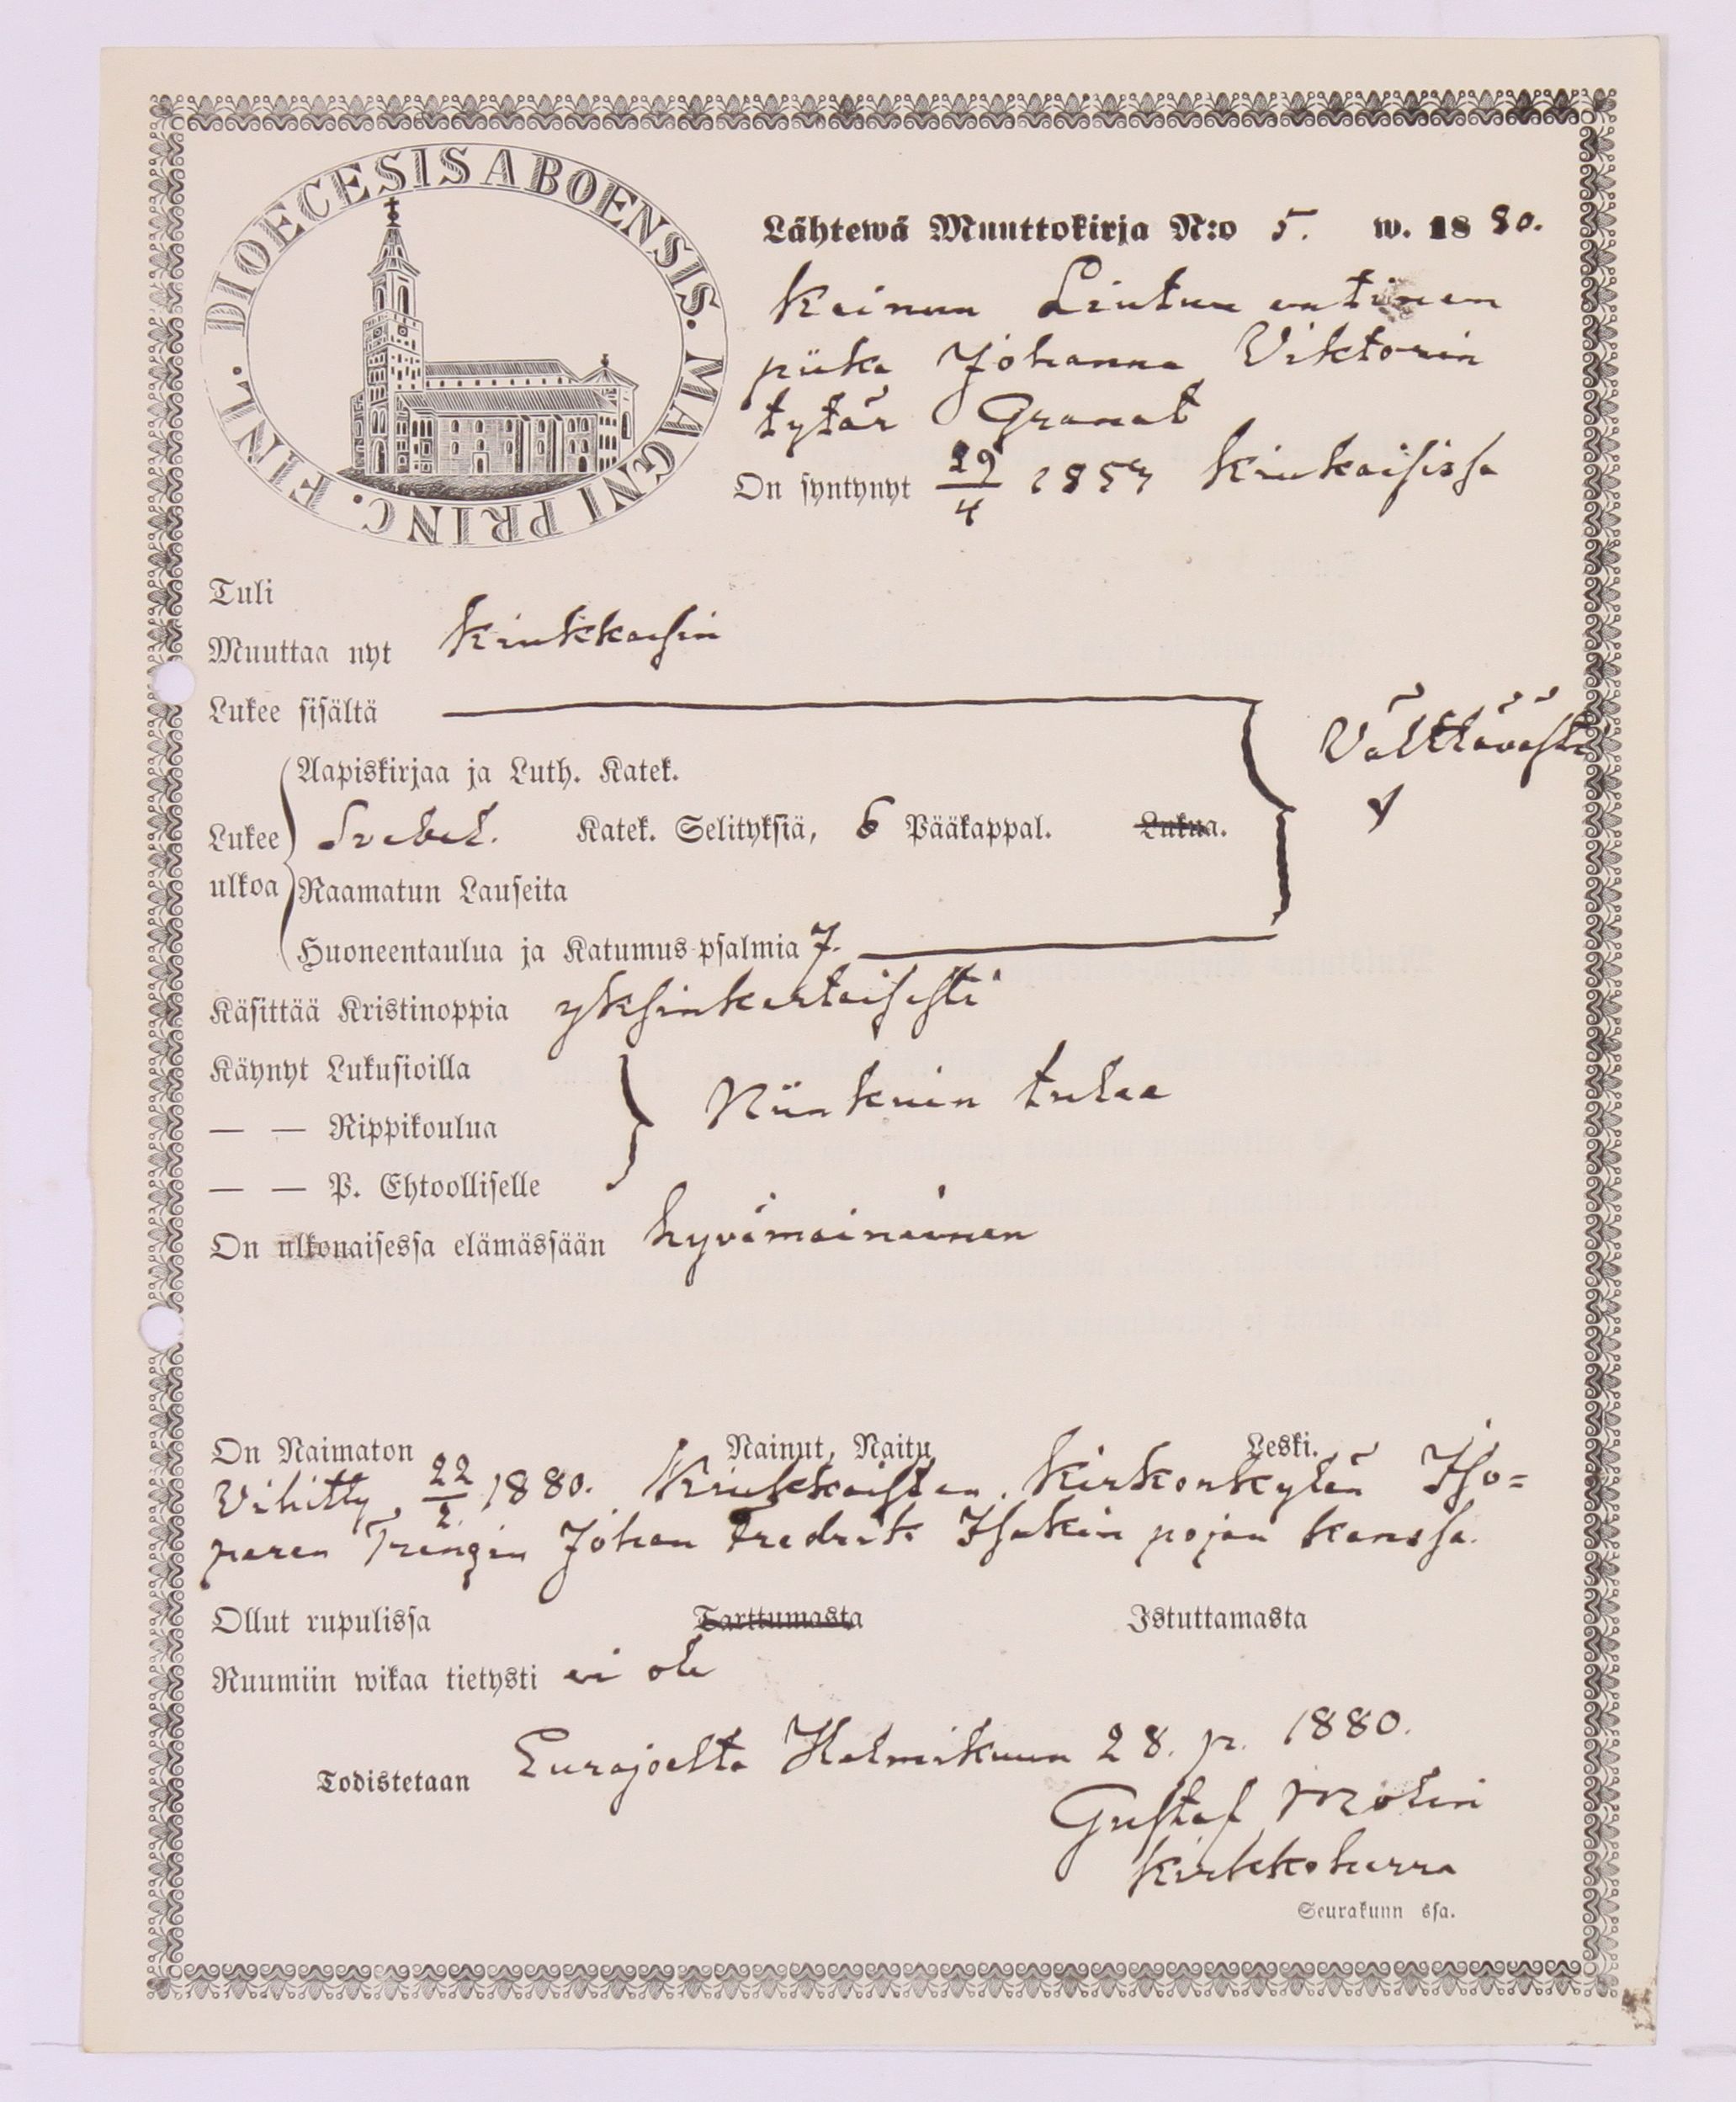 DIOECESIS ABOENSIS. MAGNI PRINC. FINL.
Lähtewä Muuttokirja N:o 5. w. 1880.
Keinun Lintun entinen
piika Johanna Viktorin
tytär Granat
On syntynyt 29/4 1857 Kiukaisissa
Tuli
Muuttaa nyt Kiukkaisin
Lukee sisältä
Välttävästi
Aapiskirjaa ja Luth. Katek.
Lukee ulkoa Svebel. Katek. Selityksiä, 6 Pääkappal. Lukua.
Raamatun Lauseita
Huoneentaulua ja Katumus-psalmia 7.
Käsittää Kristinoppia yksinkertaisesti
Käynyt Lukusioilla
— — Rippikoulua Niinkuin tulee
— — P. Ehtoolliselle
On ulkonaisessa elämässään hyvämaineinen
On Naimaton Nainut, Naitu Leski.
Vihitty 22/2 1880. Kiukkaisten Kirkonkylän Iso=
paren Trengin Johan Fredrik Isakin pojan kanssa.
Ollut rupulissa Tarttumasta Istuttamasta
Ruumiin wikaa tietysti ei ole
Todistetaan Eurajoelta Helmikuun 28. p. 1880.
Gustaf Molin
Kirkkoherra
Seurakunn ssa.